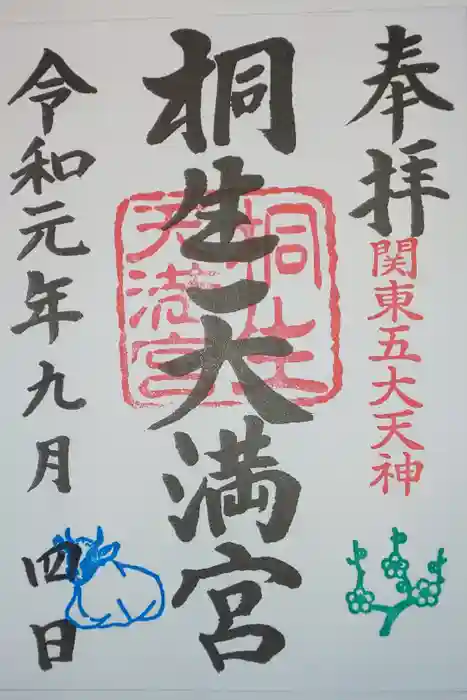 奉拝
関東五大天神
桐生天満宮
桐生
天満宮
令和元年九月四日